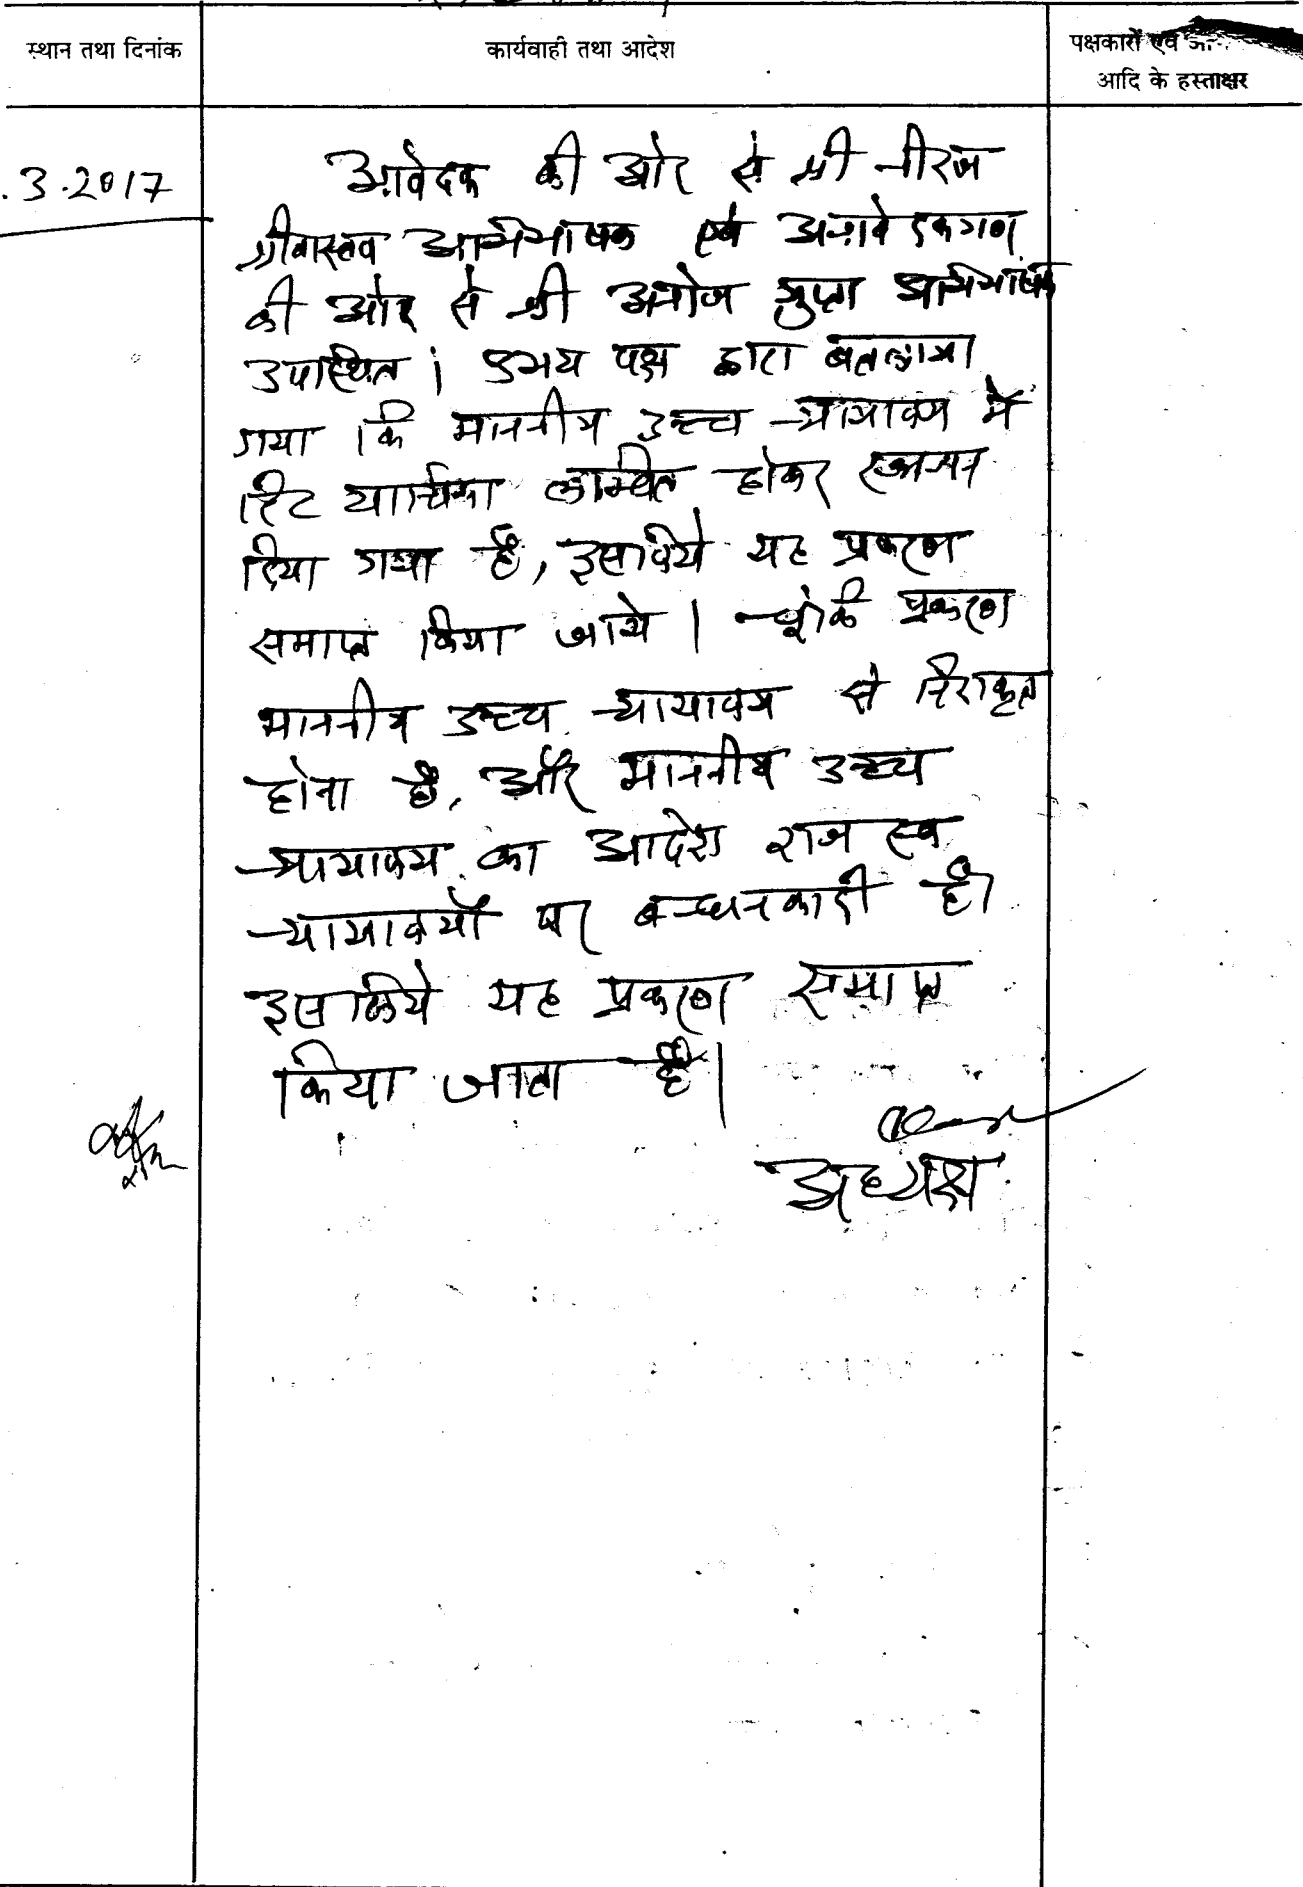 स्थान तथा दिनांक
कार्यवाही तथा आदेश
पक्षकारों एवं
आदि के हस्ताक्षर
.3.2017
आवेदक की ओर से श्री नीरज
श्रीवास्तव अभिभाषक एवं अनावेदकगण
की ओर से श्री मनोज गुप्ता अभिभाषक
उपस्थित । उभय पक्ष द्वारा बतलाया
गया कि माननीय उच्च न्यायालय में
रिट याचिका लम्बित होकर स्थगन
दिया गया है, इसलिये यह प्रकरण
समाप्त किया जाये । चूंकि प्रकरण
माननीय उच्च न्यायालय से निराकृत
होना है, और माननीय उच्च
न्यायालय का आदेश राजस्व
न्यायालयों पर बन्धनकारी है।
इसलिये यह प्रकरण समाप्त
किया जाता है।
अध्यक्ष